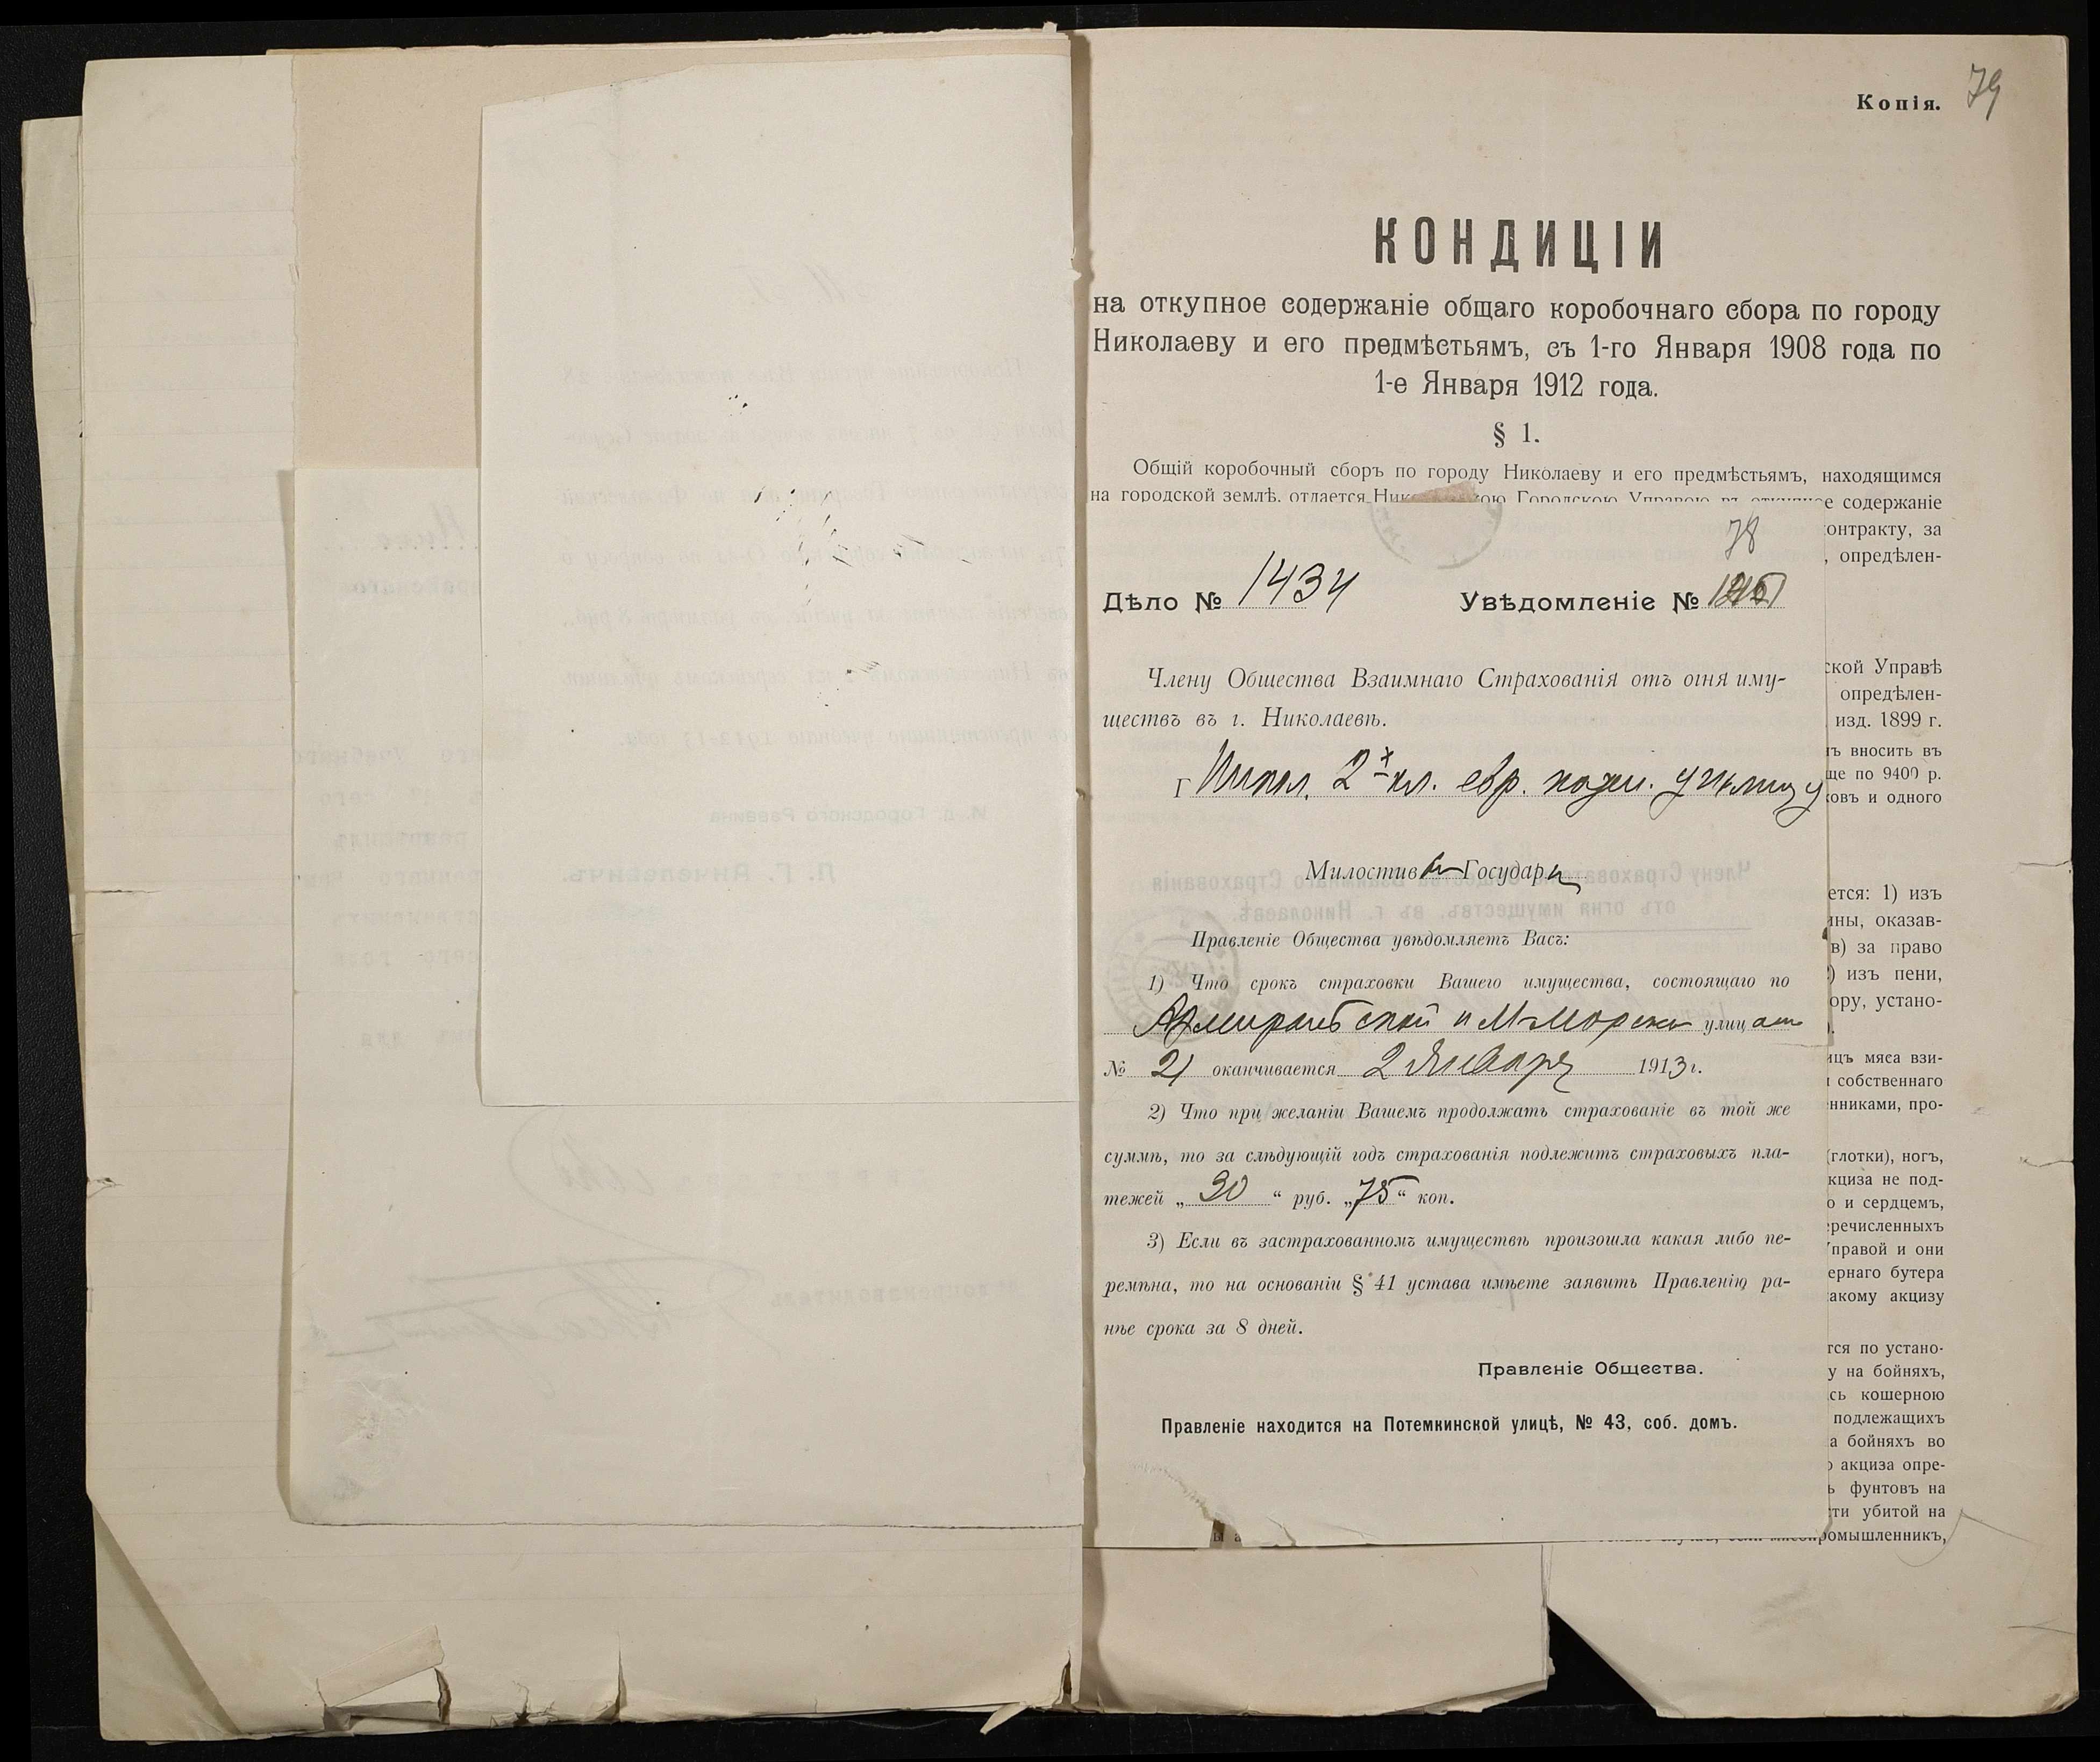 Копія.
79
КОНДИЦІИ
на откупное содержаніе общаго коробочнаго сбора по городу
Николаеву и его предмѣстьямъ, съ 1-го Января 1908 года по
1-е Января 1912 года.
§ 1.
Общій коробочный сборъ по городу Николаеву и его предмѣстьямъ, находящимся
на городской землѣ, отдается Городскою Управою въ откупное содержаніе
контракту, за
, опредѣлен-
78
Дѣло № 1434 Увѣдомленіе №
Члену Общества Взаимнаго Страхованія отъ огня иму-
ществъ въ г. Николаевѣ.
Г Никол. 2х кл. евр. казен. училищу
Милостив Государ
Правленіе Общества увѣдомляетъ Васъ:
1) Что срокъ страховки Вашего имущества, состоящаго по
Адмиральтской и М-Морской улицам
№ 21 оканчивается 2 Января 1913 г.
2) Что при желаніи Вашемъ продолжать страхованіе въ той же
суммѣ, то за слѣдующій годъ страхованія подлежитъ страховыхъ пла-
тежей „ 30 “ руб. „75“ коп.
3) Если въ застрахованномъ имуществѣ произошла какая либо пе-
ремѣна, то на основаніи § 41 устава имѣете заявить Правленію ра-
нѣе срока за 8 дней.
Правленіе Общества.
Правленіе находится на Потемкинской улицѣ, № 43, соб. домъ.
ской Управѣ
опредѣлен-
изд. 1899 г.
ъ вносить въ
ще по 9400 р.
ковъ и одного
ется: 1) изъ
ины, оказав-
в) за право
) изъ пени,
ору, устано-
ицъ мяса взи-
собственнаго
нниками, про-
(глотки), ногъ,
кциза не под-
о и сердцемъ,
речисленныхъ
Управой и они
ернаго бутера
акому акцизу
тся по устано-
у на бойняхъ,
сь кошерною
подлежащихъ
а бойняхъ во
акциза опре-
ь фунтовъ на
сти убитой на
ромышленникъ,